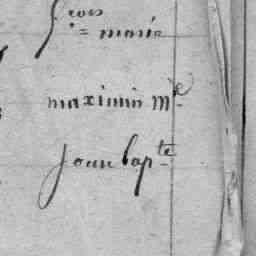 frois
= marie
maximin Mle
Jean bapte